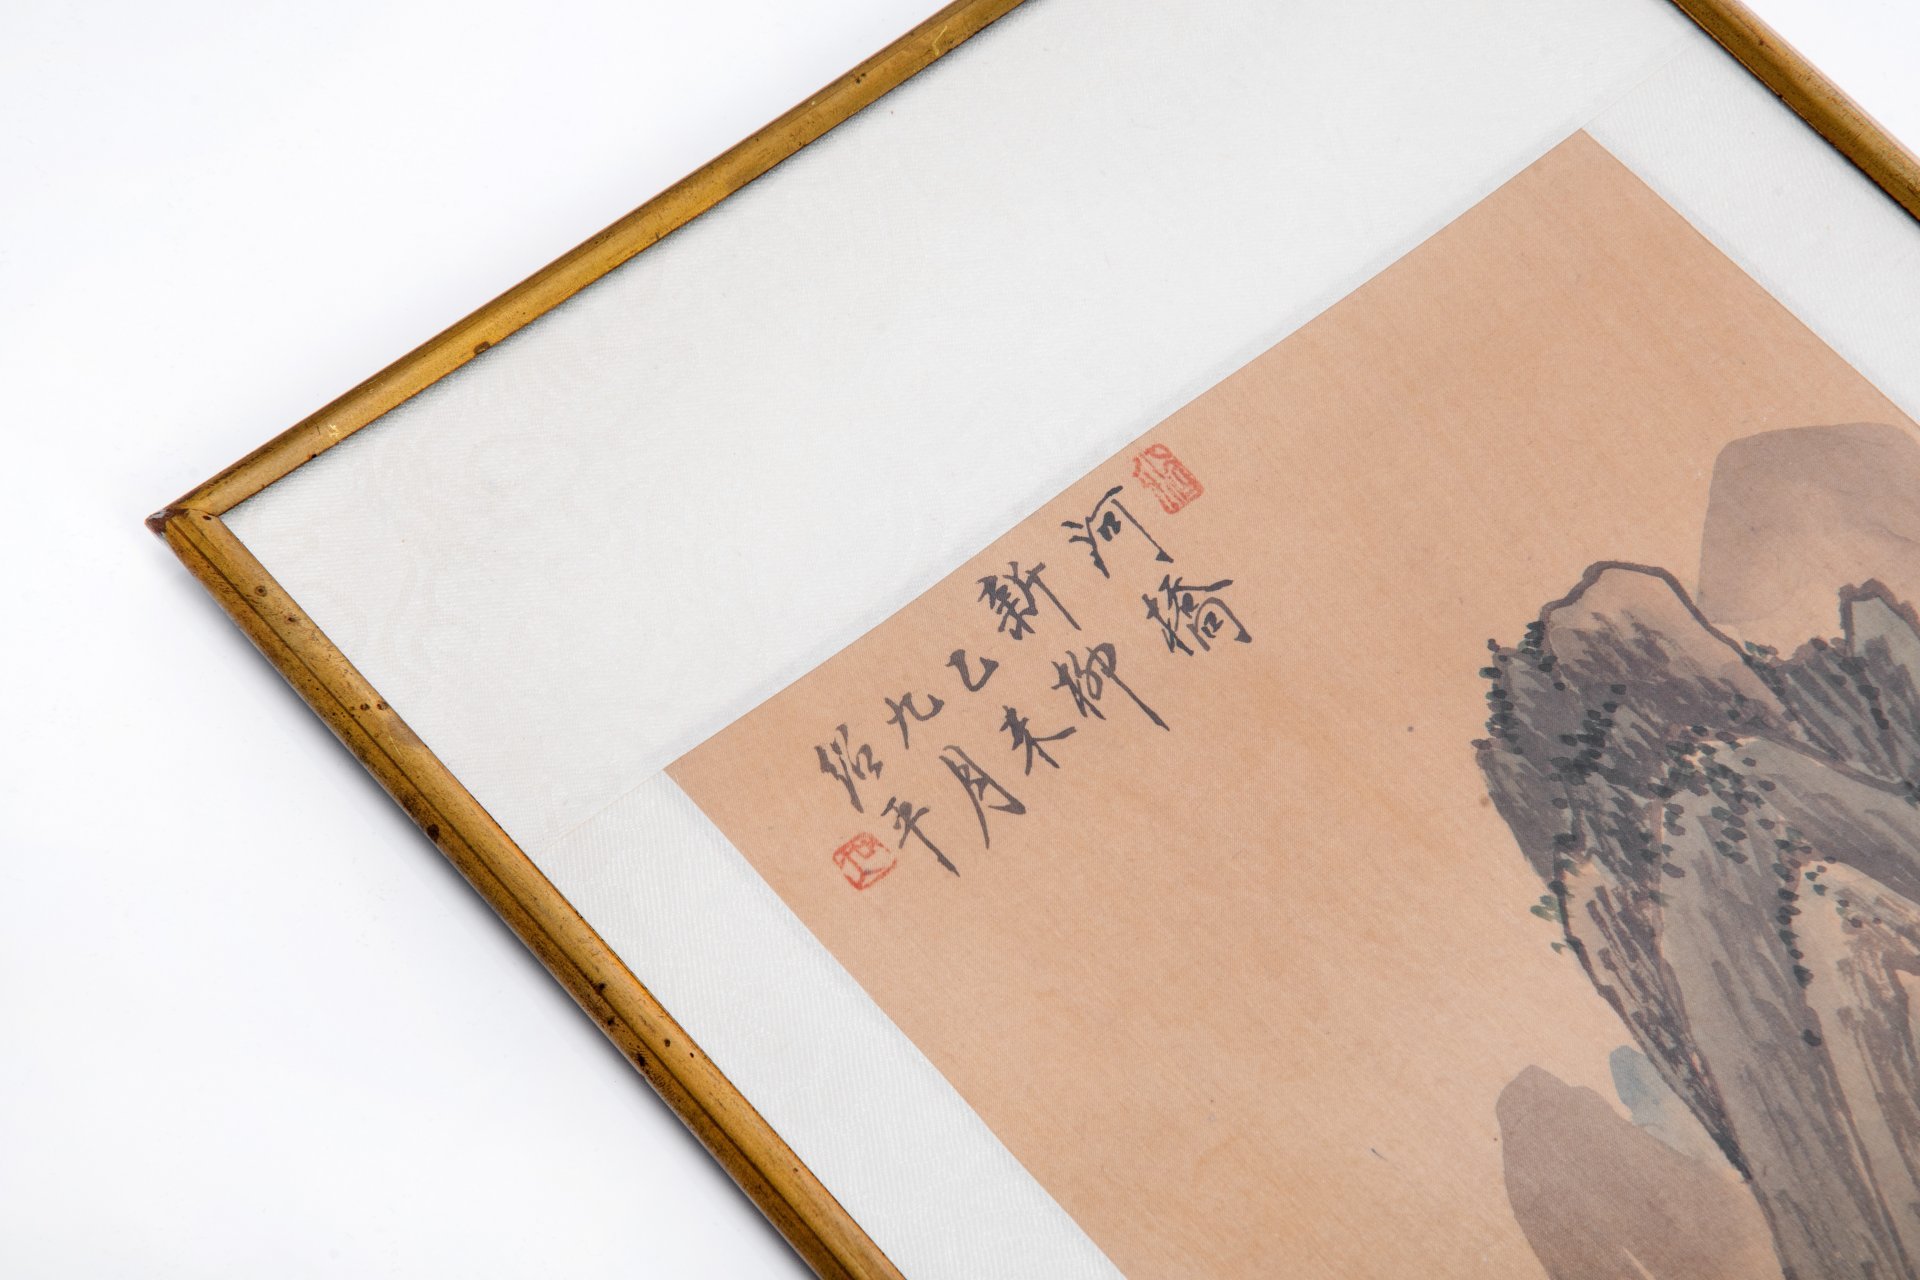 河橋
新柳
乙未
九月
紹平